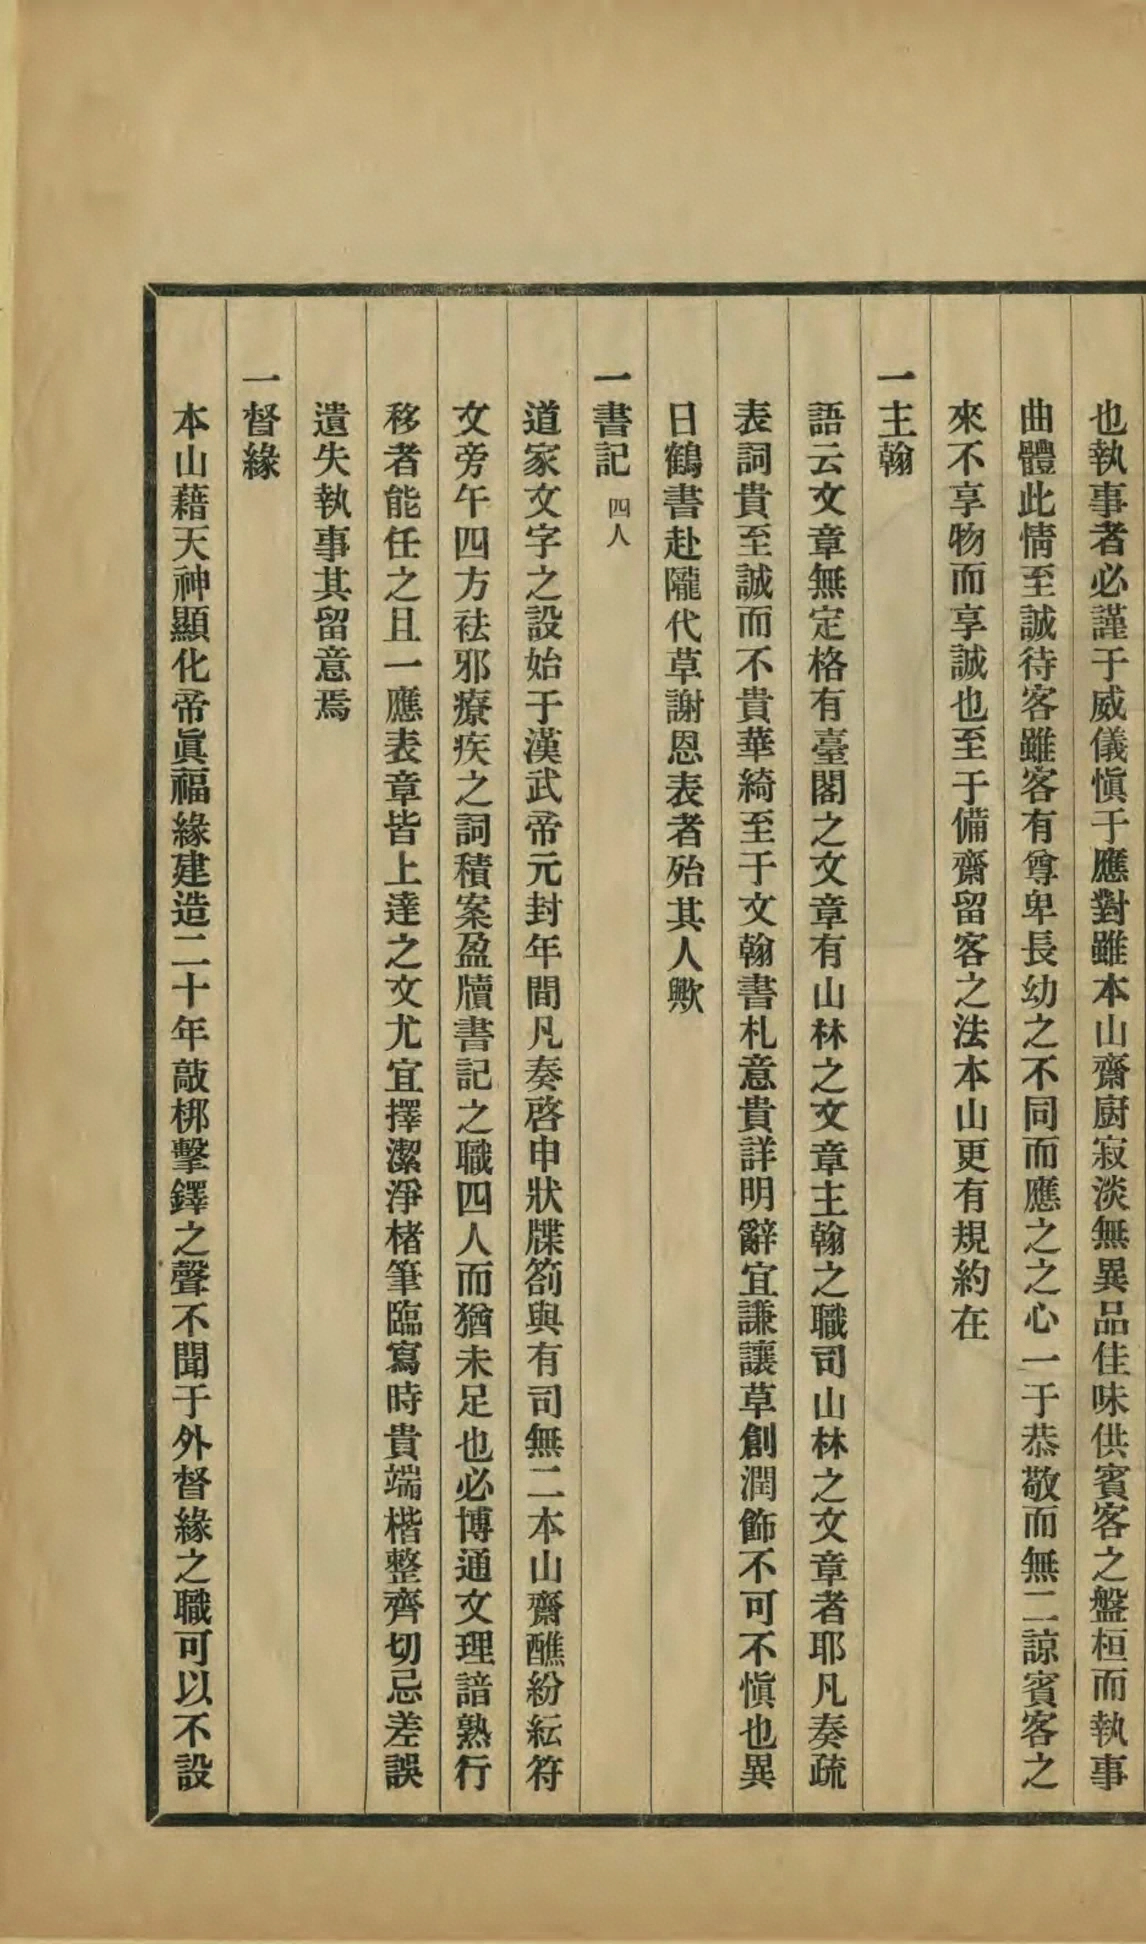 也執事者必謹于威儀愼于應對雖本山齋厨寂淡無異品佳味供賓客之盤桓而執事
曲體此情至誠待客雖客有尊卑長幼之不同而應之之心一于恭敬而無二諒賓客之
來不享物而享誠也至于備齋留客之法本山更有規約在
一主翰
語云文章無定格有臺閣之文章有山林之文章主翰之職司山林之文章者耶凡奏疏
表詞貴至誠而不貴華綺至于文翰書札意貴詳明辭宜謙讓草創潤飾不可不愼也異
日鶴書赴隴代草謝恩表者殆其人歟
一書記 四人
道家文字之設始于漢武帝元封年間凡奏啓申狀牒箚與有司無二本山齋醮紛紜符
文旁午四方祛邪療疾之詞積案盈牘書記之職四人而猶未足也必博通文理諳熟行
移者能任之且一應表章皆上達之文尤宜擇潔淨楮筆臨寫時貴端楷整齊切忌差誤
遺失執事其留意焉
一督緣
本山藉天神顯化帝眞福緣建造二十年敲梆擊鐸之聲不聞于外督緣之職可以不設